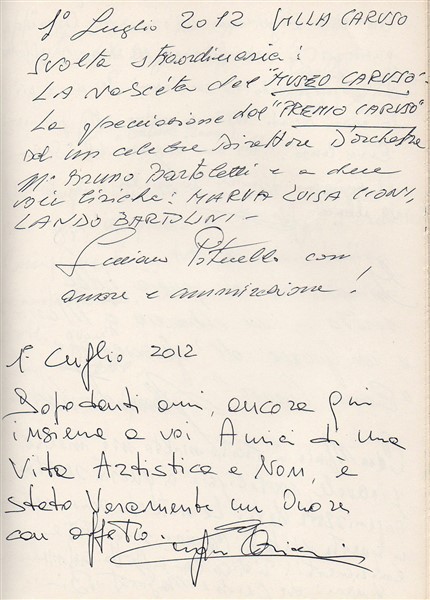 1° Luglio 2012 VILLA CARUSO
svolta straordinaria!
LA nascita del "MUSEO CARUSO"
La del "PREMIO CARUSO"
ad un celebre Direttore D'orchestra
M° Bruno Bartoletti e a due
voci liriche: MARIA LUISA CIONI,
LANDO BARTOLINI -
Luciano Pituello con
amore e ammirazione!
1° Luglio 2012
Dopo tanti anni, ancora qui
insieme a voi Amici di una
Vita Artistica e Non, è
stato Veramente un Onore
con affetto.